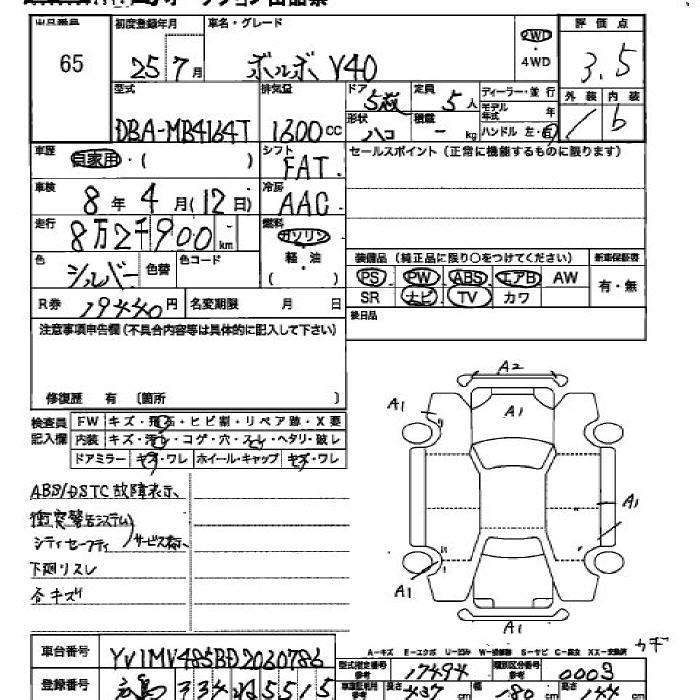 出品番号 初度登録年月 車名・グレード 評価点
65 25年7月 ボルボ V40 2WD・4WD 3.5
型式 排気量 ドア 5枚 定員 5人 ディーラー・並行 外装 内装
DBA-MB4164T 1600cc 形状 ハコ 積載 - kg モデル年式 年 ハンドル 左・右 b
車歴 自家用・( ) シフト FAT セールスポイント(正常に機能するものに限ります)
車検 8年4月(12日) 冷房 AAC
走行 8万2千900km 燃料 ガソリン
軽・油
( )
色 シルバー 色替 色コード
装備品(純正品に限り○をつけてください) 新車保証書
PS PW ABS エアB AW 有・無
SR ナビ TV カワ
R券 19440円 名変期限 月 日 後日品
注意事項申告欄(不具合内容等は具体的に記入して下さい)
修復歴 有 〔箇所 〕
検査員記入欄 FW キズ・飛石・ヒビ割・リペア跡・X要
内装 キズ・汚レ・コゲ・穴・スレ・ヘタリ・破レ
ドアミラー キズ・ワレ ホイール・キャップ キズ・ワレ
ABS/DSTC故障表示、
衝突警告システム
シティセーフティ サービス表示、
下廻リスレ
合キズ
A2
A1 A1
A1
A1
A1
A-キズ E-エクボ
車台番号 YV1MV485BD2060786
型式指定番号参考 17494 類別区分番号参考 0003
登録番号 広島 334 5515
長さ 437cm 幅 180cm